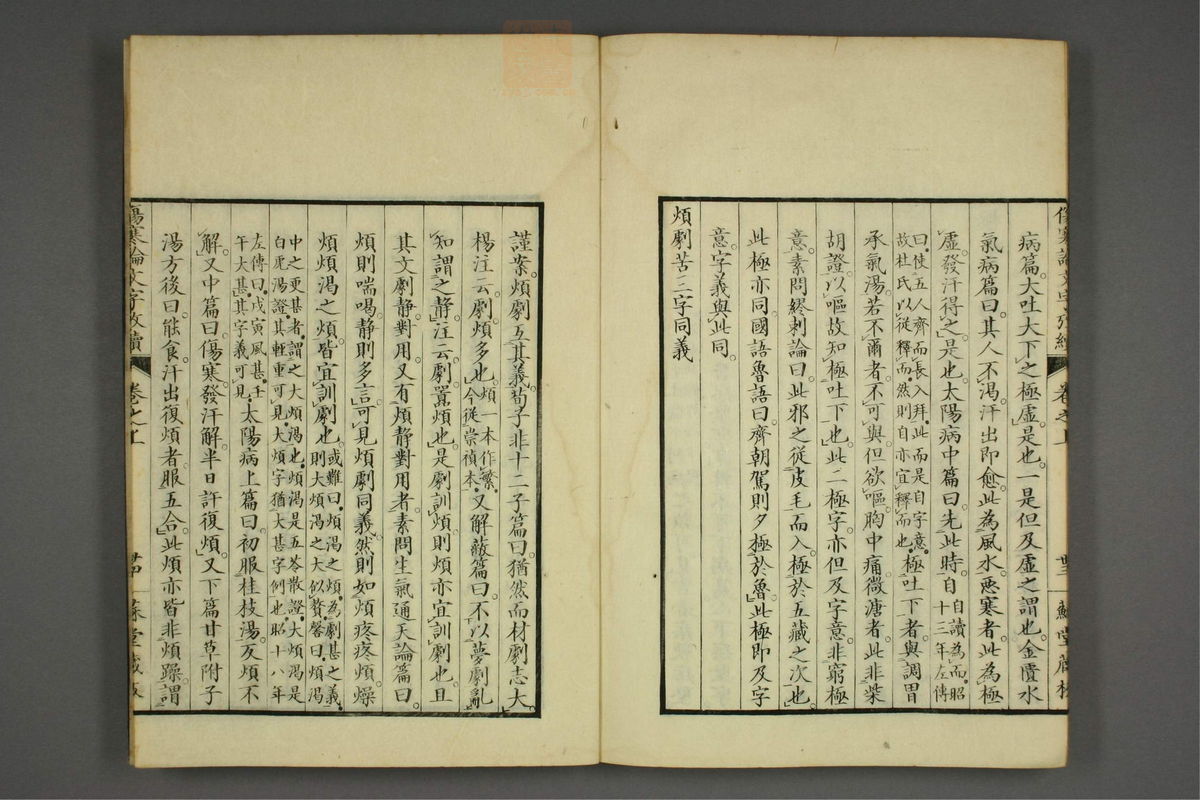 病篇大吐大下之極虛是也一是但及虛之謂也金匱水
氣病篇曰其人不渴汗出即愈此為風水惡寒者此為極
虛發汗得之是也太陽病中篇曰先此時自自讀為而昭十三年左傳
曰使五人齊而長入拜此而是自字意故杜氏以從釋而然則自亦宜釋而也極吐下者與調胃
承氣湯若不爾者不可與但欲嘔胸中痛微溏者此非柴
胡證以嘔故知極吐下也此二極字亦但及字意非窮極
意素問繆刺論曰此邪之從皮毛而入極於五藏之次也
此極亦同國語魯語曰齊朝駕則夕極於魯此極即及字
意字義與此同
煩劇苦三字同義
謹案煩劇互其義荀子非十二子篇曰猶然而材劇志大
楊注云劇煩多也煩一本作繁今從崇禎本又解蔽篇曰不以夢劇亂
知謂之靜注云劇囂煩也是劇訓煩則煩亦宜訓劇也且
其文劇靜對用又有煩靜對用者素問生氣通天論篇曰
煩則喘喝靜則多言可見煩劇同義然則如煩疼疼煩燥
煩煩渴之煩皆宜訓劇也或難曰煩渴之煩為劇甚之義則大煩渴之大似贅馨曰煩渴
中之更甚者謂之大煩渴也煩渴是五苓散證大煩渴是白虎湯證其輕重可見大煩字猶大甚字例也昭十八年
左傳曰戊寅風甚壬午大甚其字義可見太陽病上篇曰初服桂枝湯反煩不
解又中篇曰傷寒發汗解半日許復煩又下篇甘草附子
湯方後曰能食汗出復煩者服五合此煩亦皆非煩躁謂